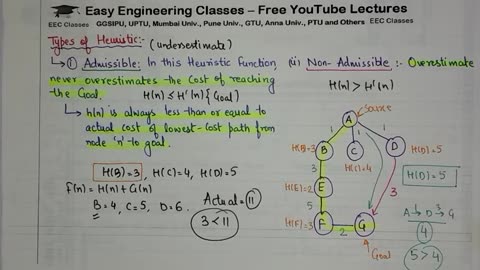 Easy Engineering Classes – Free YouTube Lectures
EEC Classes GGSIPU, UPTU, Mumbai Univ., Pune Univ., GTU, Anna Univ., PTU and Others EEC Classes
Types of Heuristic:- (underestimate)
① Admissible: In this Heuristic Function,
never overestimates the cost of reaching
the Goal.
H(n) ≤ H'(n) {Goal}
h(n) is always less than or equal to
actual cost of lowest-cost path from
node 'n' to goal.
H(B)=3, H(C)=4, H(D)=5
f(n) = H(n) + G(n)
B=4, C=5, D=6.
Actual = 11
3 < 11
(ii) Non-Admissible :- Overestimate
H(n) > H'(n)
Source
A
1
1
1
H(B)=3
B
C
D
H(D)=5
H(C)=4
3
H(E)=2
E
H(D)=5
3
5
H(F)=3
F
2
G
Goal
A → D → G
1
3
4
5 > 4